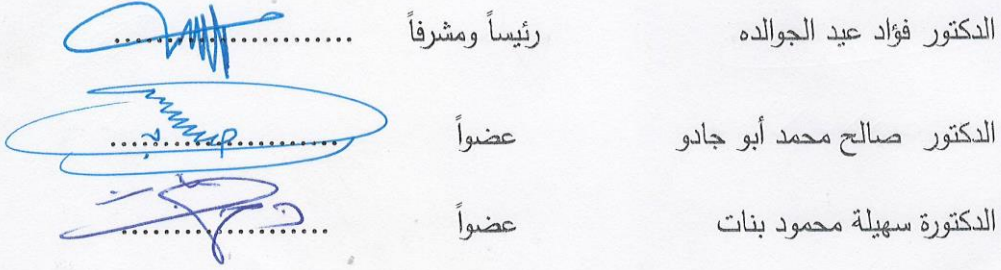 الدكتور فؤاد عيد الجوالده رئيساً ومشرفاً ........................
الدكتور صالح محمد أبو جادو عضواً ........................
الدكتورة سهيلة محمود بنات عضواً ........................